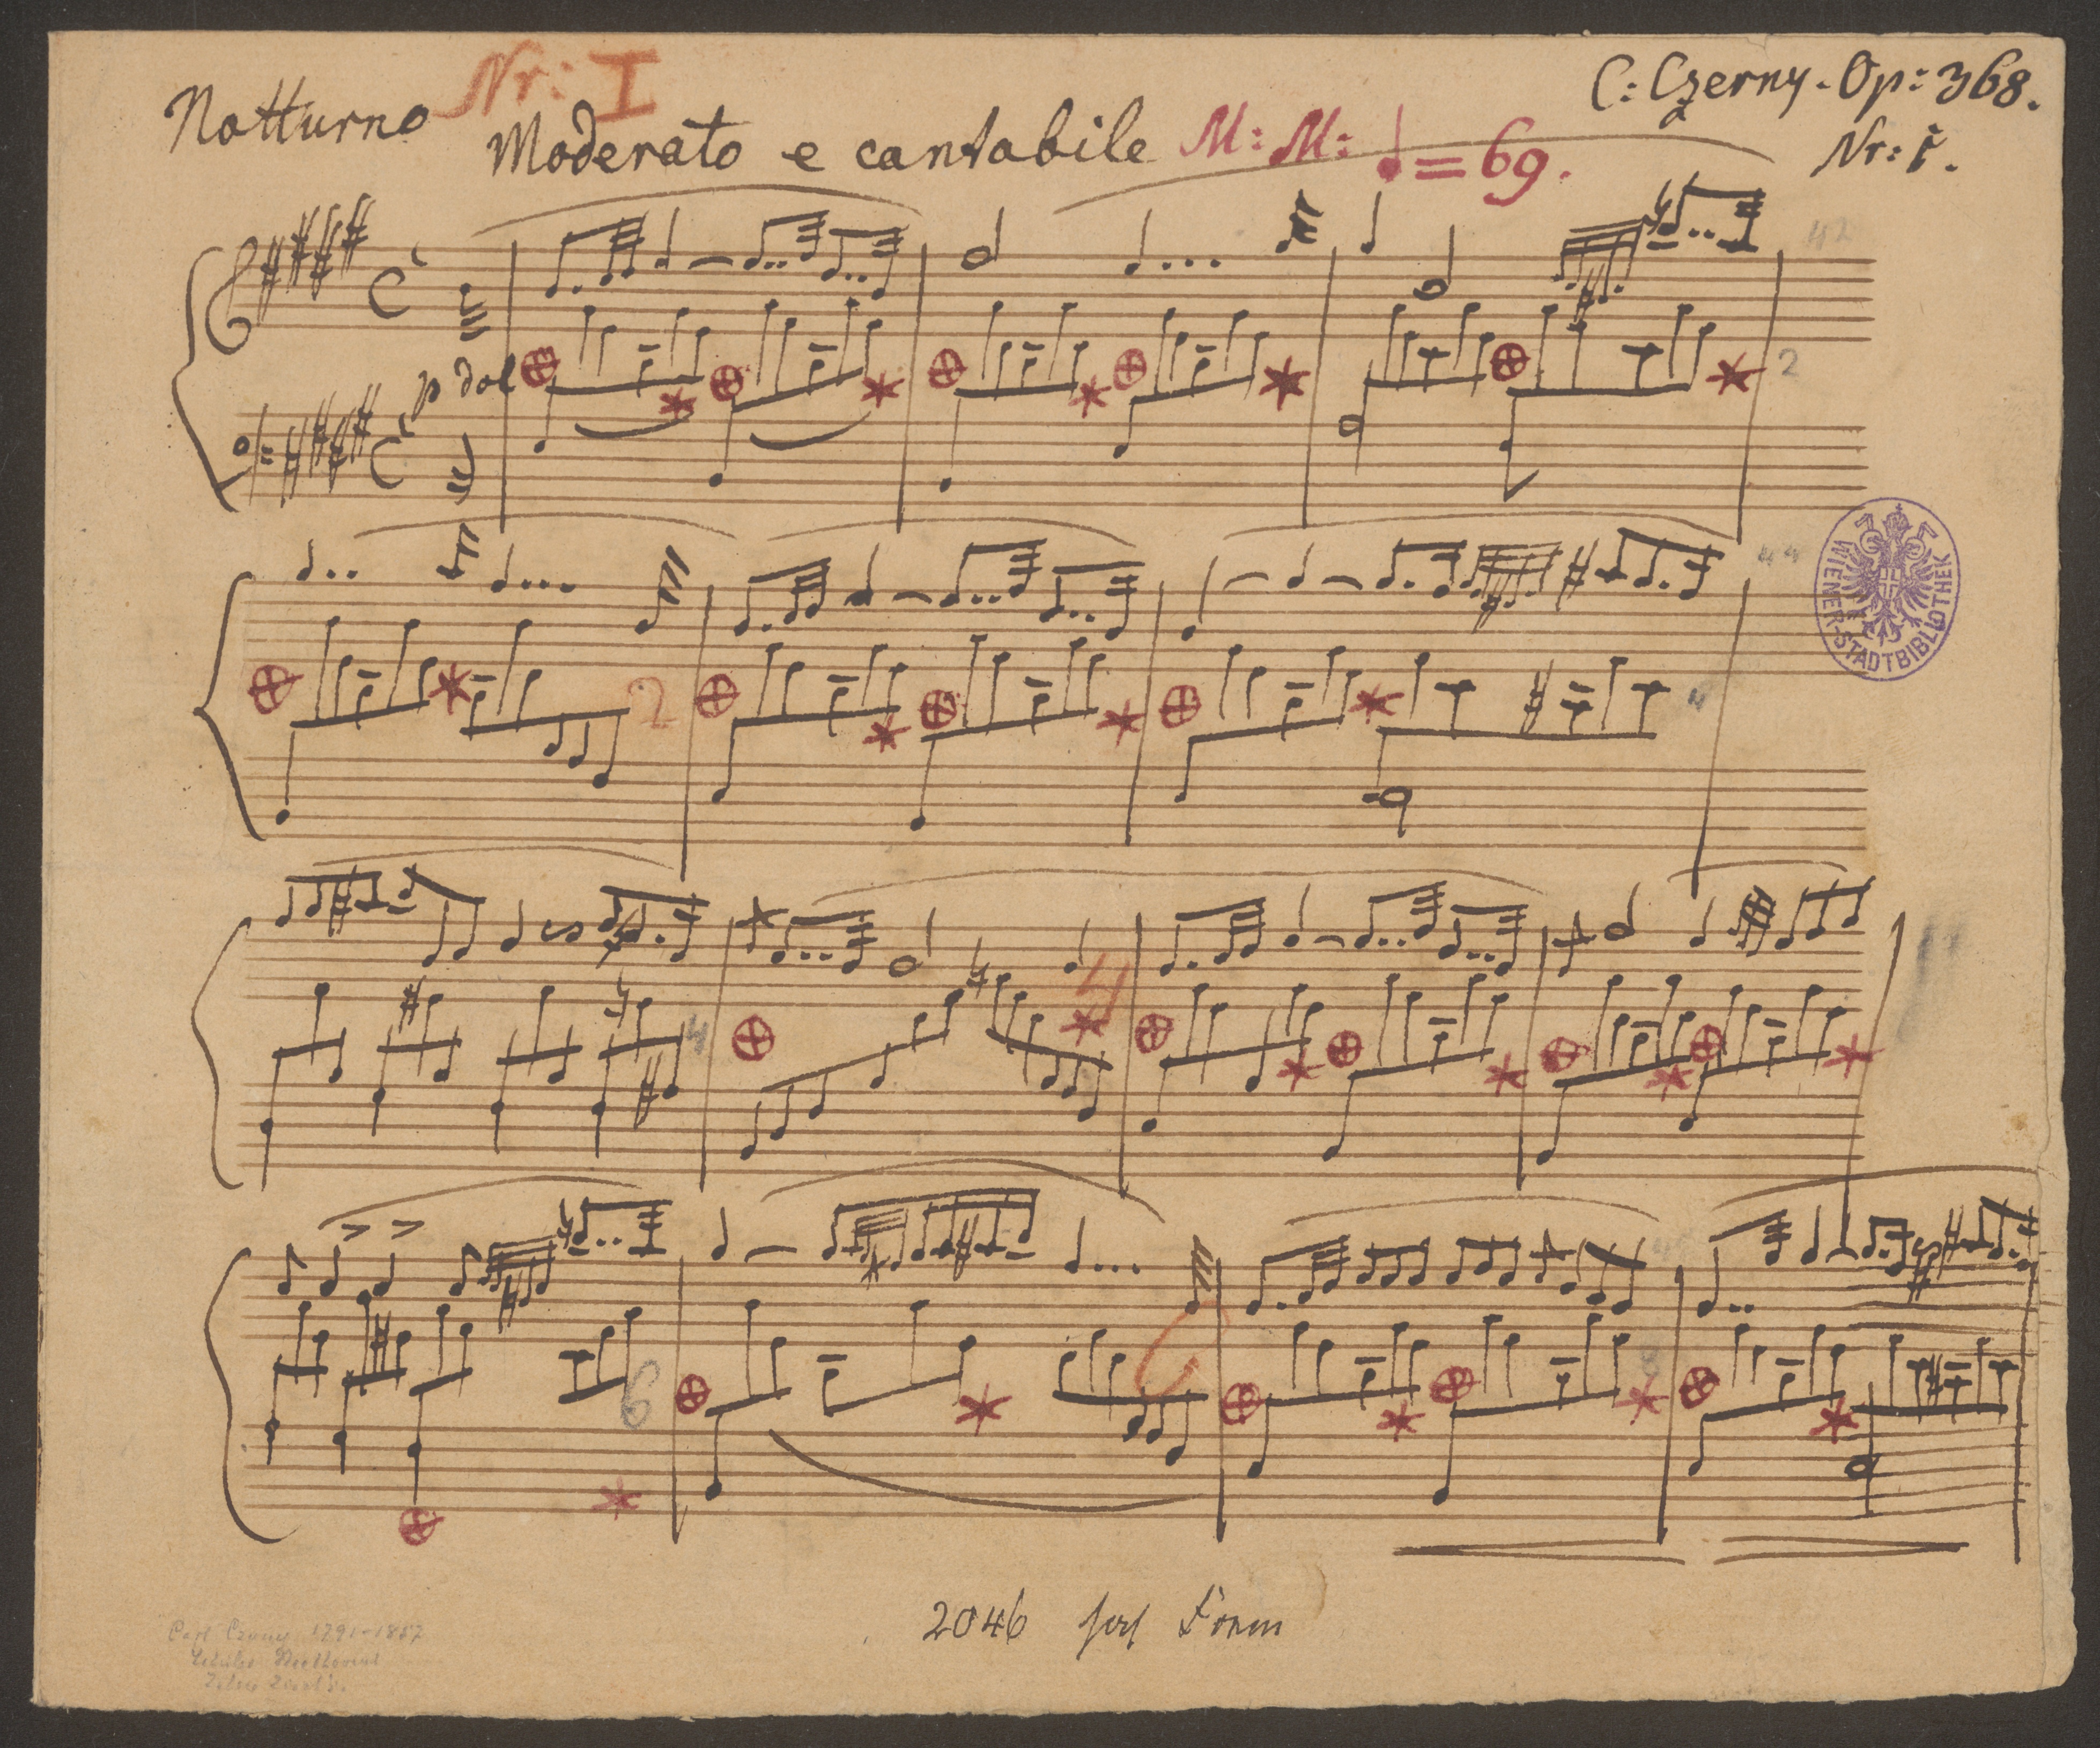 Nr: I
C: Czerny. Op: 368.
Notturno
Moderato e cantabile M: M: ♩ = 69.
Nr: 1.
42
p dol
2
WIENER-STADTBIBLIOTHEK
44
2
4
4
4
6
2046
Carl Czerny 1791–1857
Schüler Beethovens